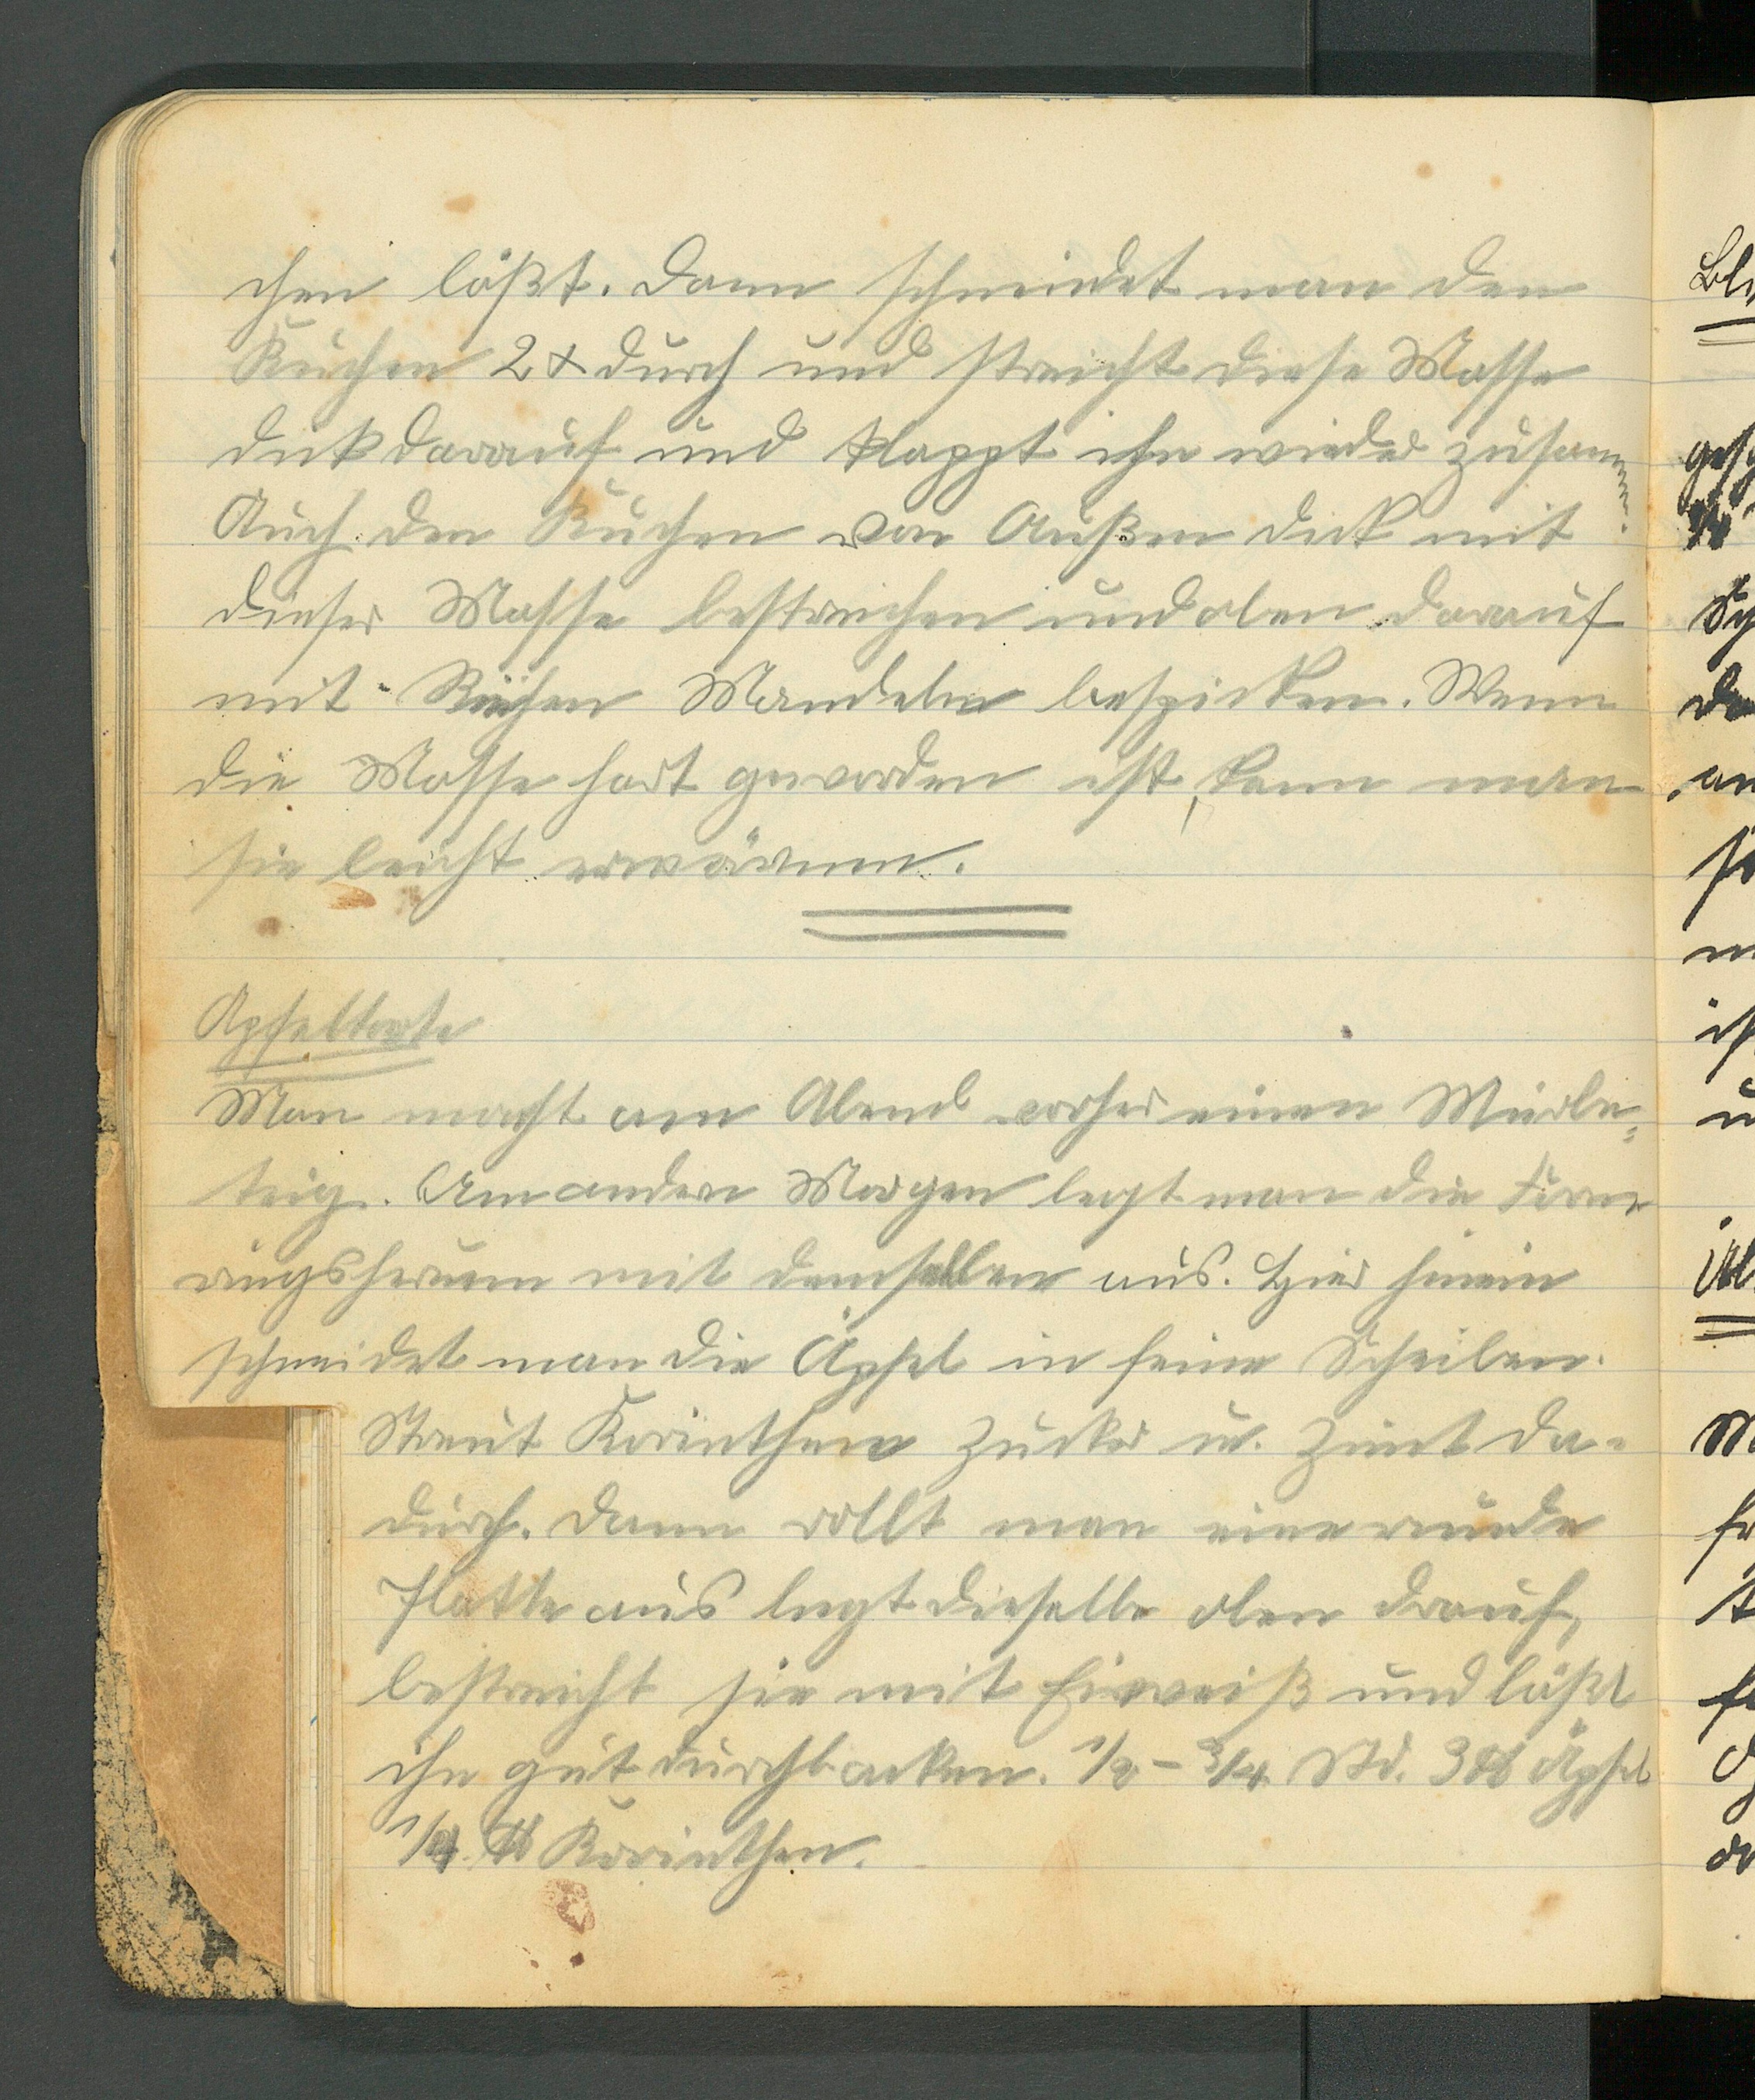 chen läßt. Dann schneidet man den
Kuchen 2 x durch und streicht diese Masse
dick darauf und klappt ihn wieder zusammen.
Auch den Kuchen von Außen dick mit
dieser Masse bestreichen und oben darauf
mit Mandeln bespicken. Wenn
die Masse hart geworden ist, kann man
sie leicht erwärmen.
Apfeltorte
Man macht am Abend vorher einen Mürbe-
teig. Am andern Morgen legt man die Form
ringsherum mit demselben aus. Hier hinein
schneidet man die Äpfel in feine Scheiben.
Streut Korinthen Zucker u. Zimt da-
durch. Dann rollt man eine runde
Platte aus legt dieselbe oben drauf,
bestreicht sie mit Eiweiß und läßt
ihn gut durchbacken. 1/2 - 3/4 Std. 3 ℔ Äpfel
1/4 ℔ Korinthen.